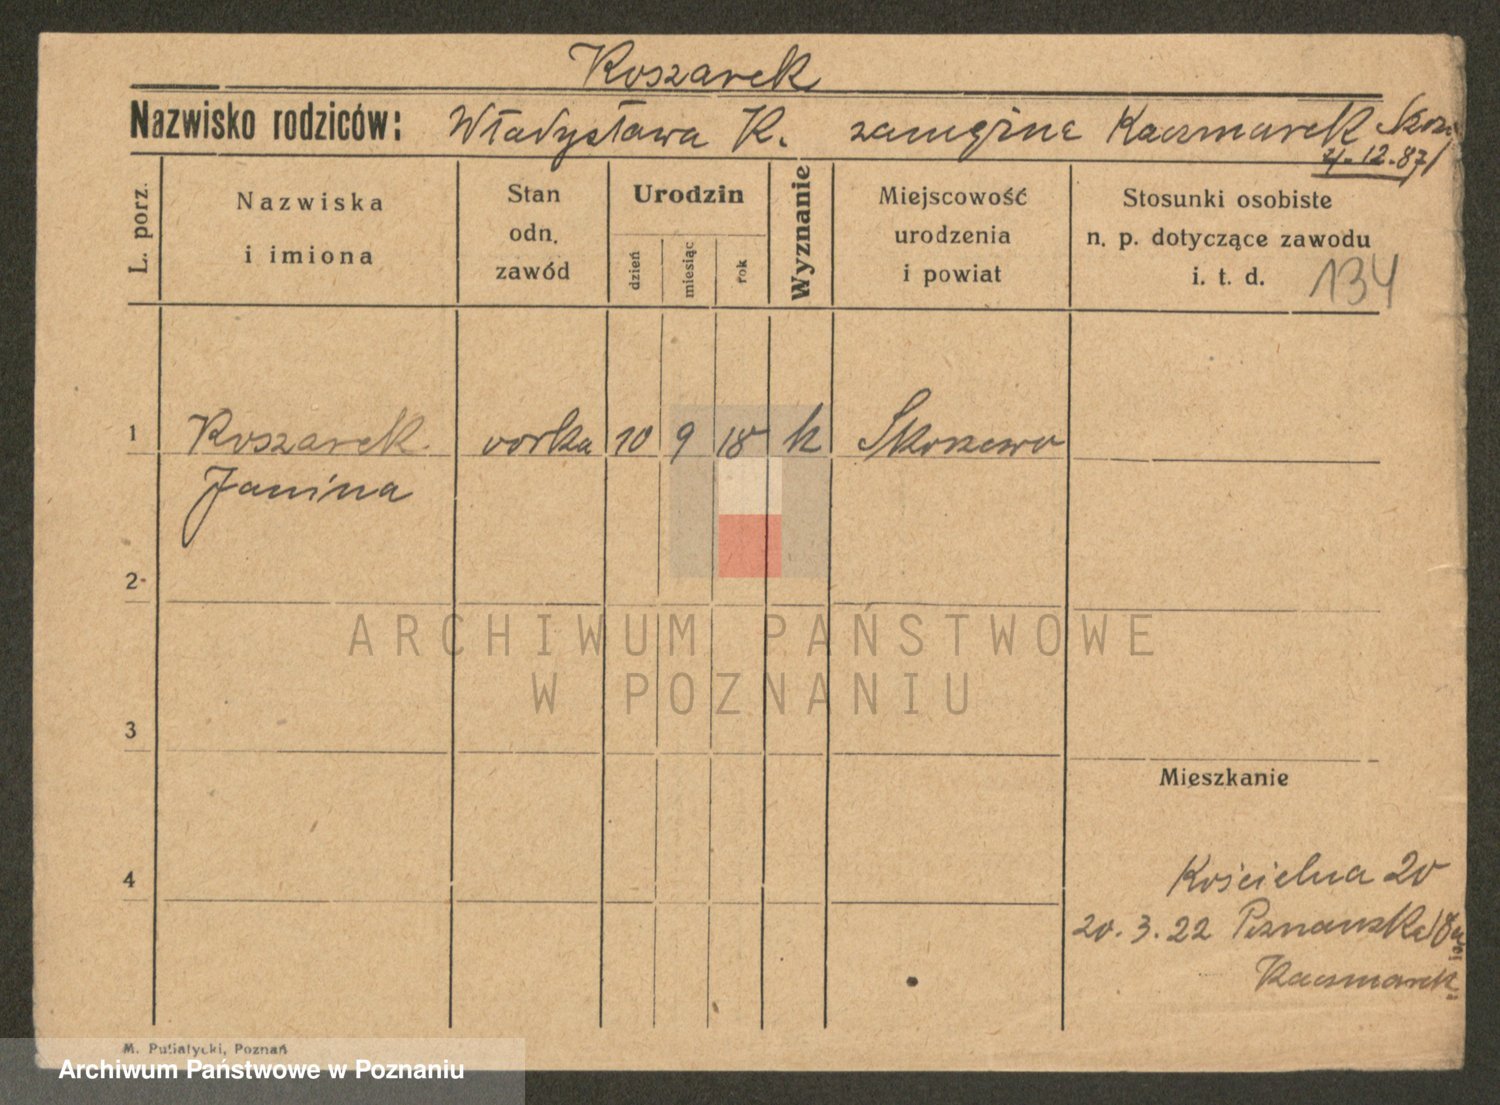 Koszarek
Nazwisko rodziców: Władysława K. zamężne Kaczmarek
21.12.87
L. porz.
Nazwiska
i imiona
Stan
odn.
zawód
Urodzin
dzień
miesiąc
rok
Wyznanie
Miejscowość
urodzenia
i powiat
Stosunki osobiste
n. p. dotyczące zawodu
i. t. d.
134
1 Koszarek córka 10 9 18 k Skorzewo
Janina
2
3
4
Mieszkanie
Kościelna 20
20.3.22 Poznańska
Kaczmarek
ARCHIWUM PAŃSTWOWE
W POZNANIU
M. Putiatycki, Poznań
Archiwum Państwowe w Poznaniu